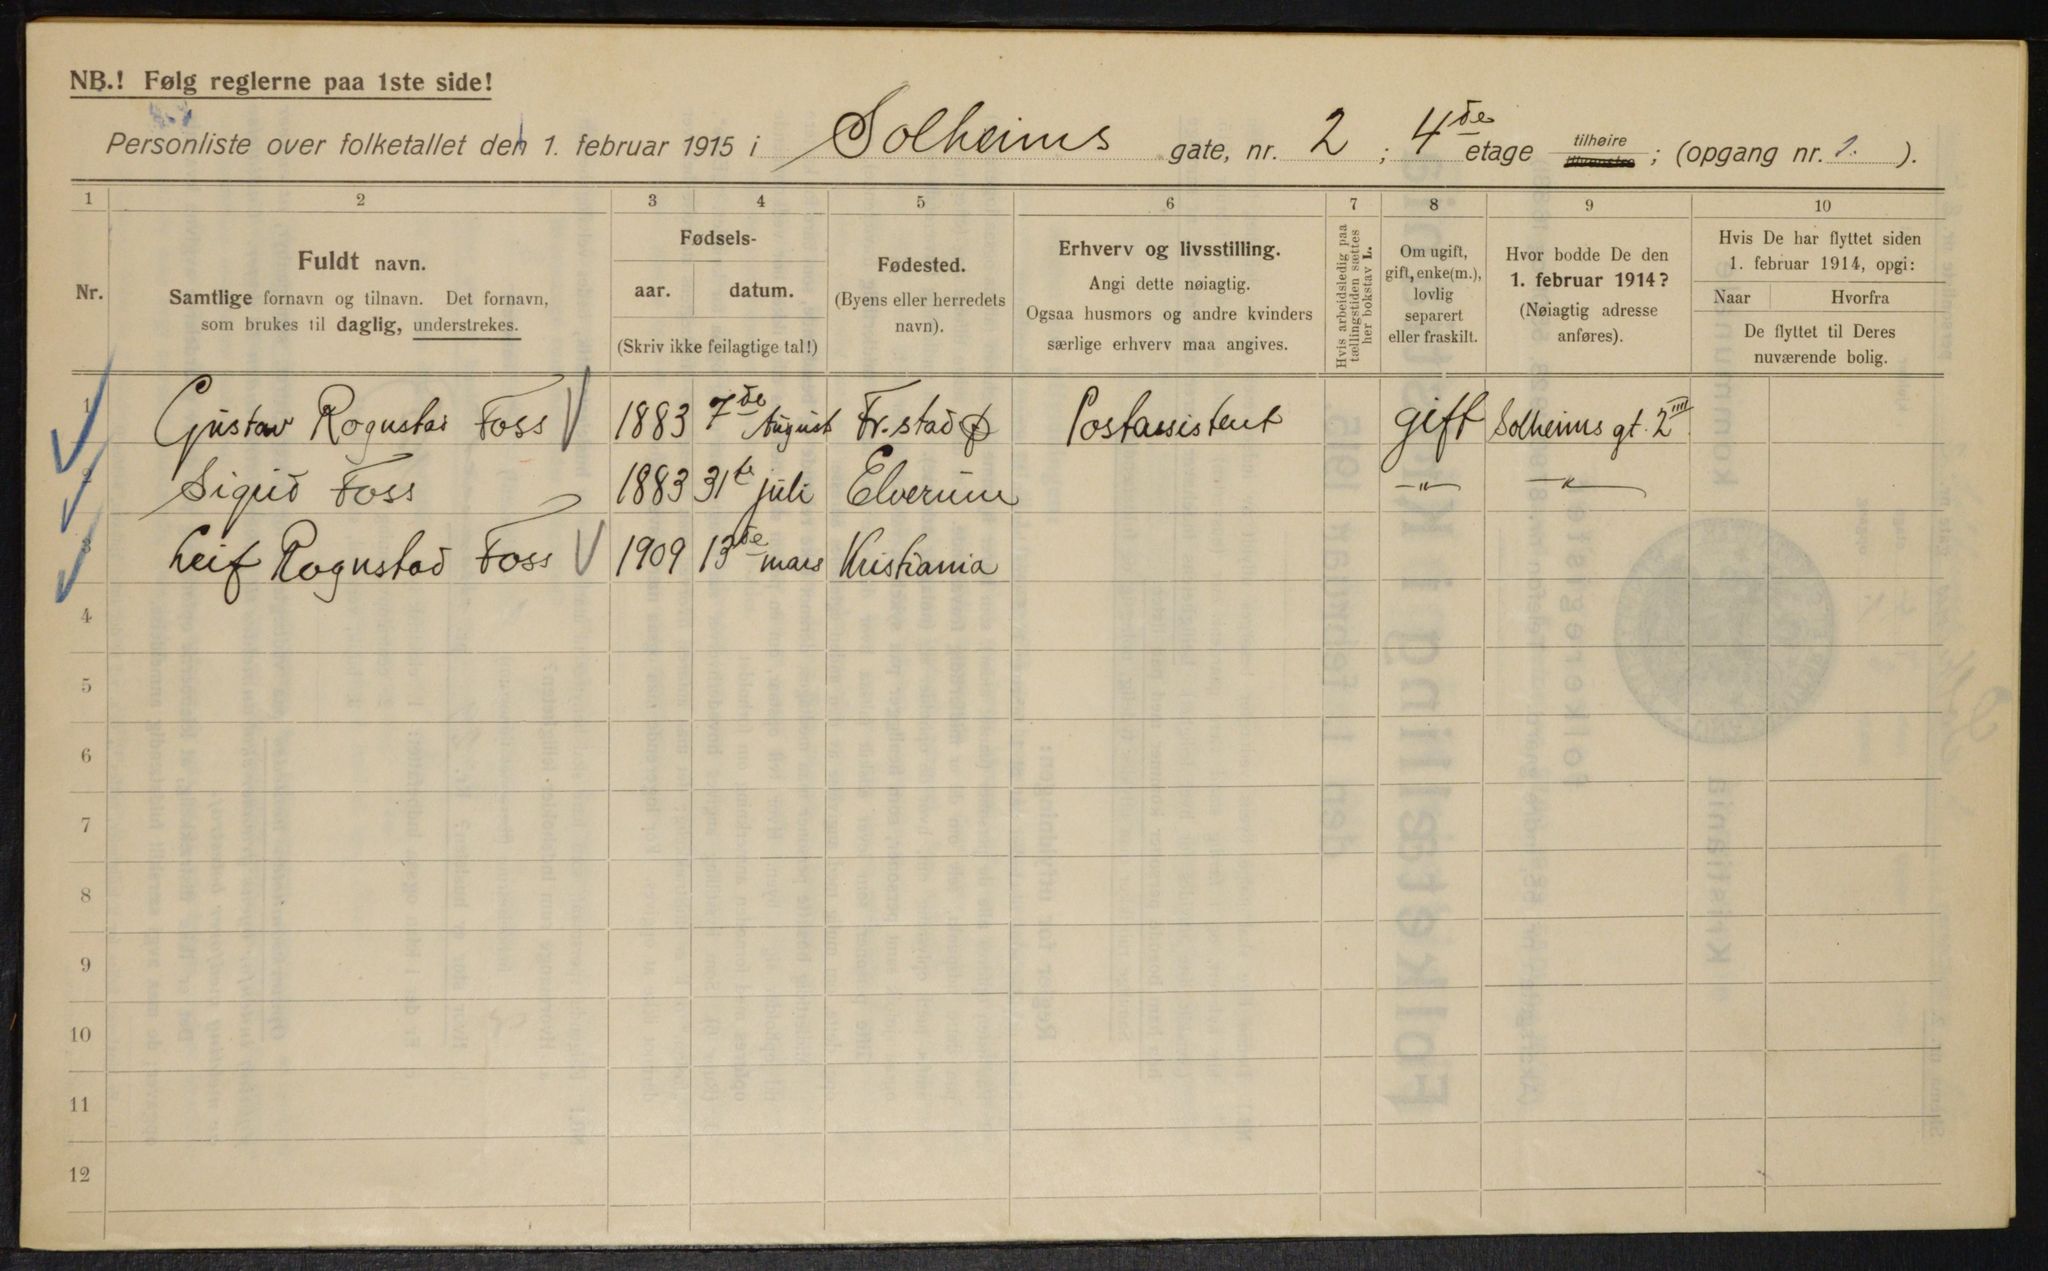 NB.! Følg reglerne paa 1ste side!
Personliste over folketallet den 1. februar 1915 i Solheims gate, nr. 2 ; 4de etage tilhøire ; (opgang nr. 1. ).
1 2 3 4 5 6 7 8 9 10
Nr.
Fuldt navn.
Samtlige fornavn og tilnavn. Det fornavn,
som brukes til daglig, understrekes.
Fødsels-
aar. datum.
(Skriv ikke feilagtige tal!)
Fødested.
(Byens eller herredets
navn).
Erhverv og livsstilling.
Angi dette nøiagtig.
Ogsaa husmors og andre kvinders
særlige erhverv maa angives.
Hvis arbeidsledig paa
tællingstiden sættes
her bokstav L.
Om ugift,
gift, enke(m.),
lovlig
separert
eller fraskilt.
Hvor bodde De den
1. februar 1914?
(Nøiagtig adresse
anføres).
Hvis De har flyttet siden
1. februar 1914, opgi:
Naar Hvorfra
De flyttet til Deres
nuværende bolig.
1 Gustav Rognstad Foss 1883 7de August Fr.stad Postassistent gift Solheims gt. 2 IIII
2 Sigrid Foss 1883 31te juli Elverum -"- -"-
3 Leif Rognstad Foss 1909 13de mars Kristiania
4
5
6
7
8
9
10
11
12